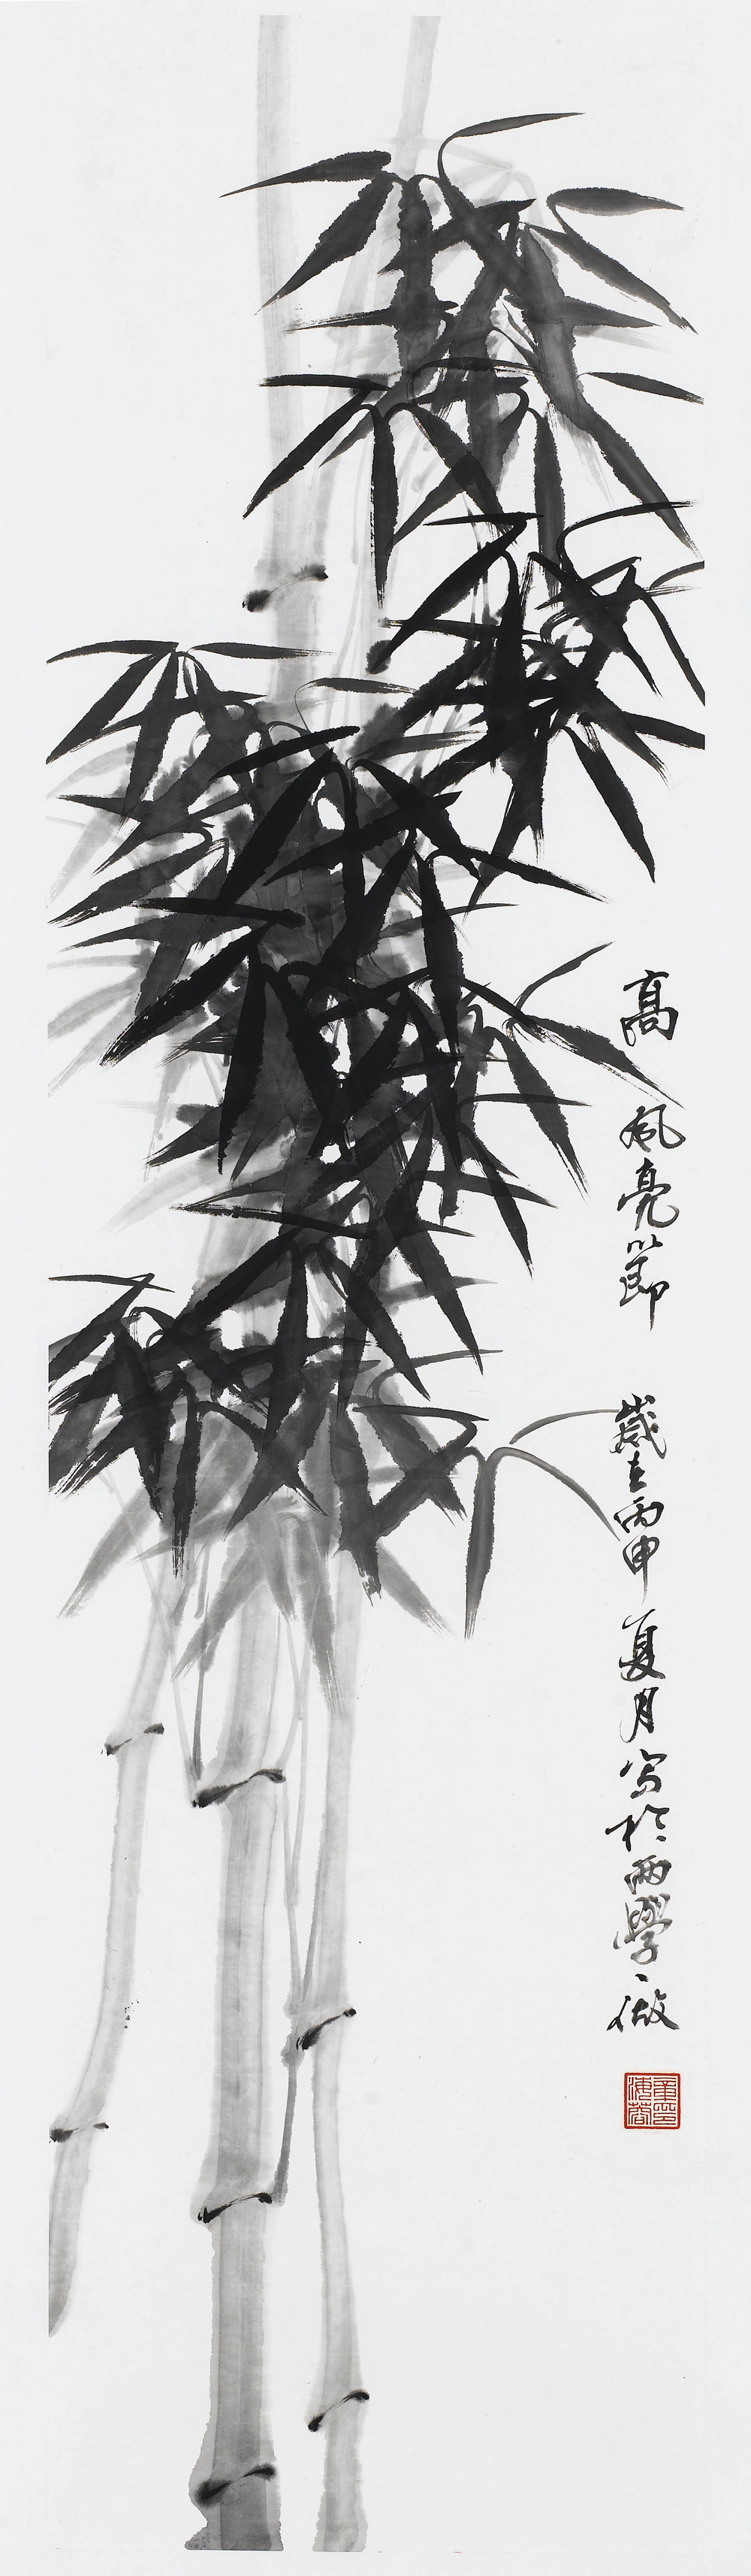 高風亮節 歲在丙申夏月寫於兩學一做